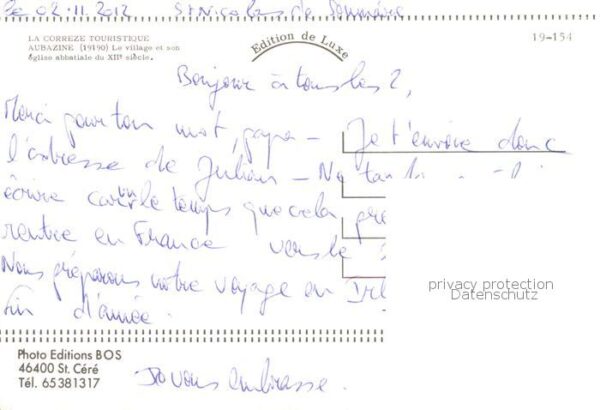 le 02.11.2012 St Nicolas de
LA CORREZE TOURISTIQUE
AUBAZINE (19190) Le village et son
église abbatiale du XIIe siècle.
Edition de Luxe
19-154
Bonjour à tous les 2,
Merci pour ton mot, papa - Je t'envoie donc
l'adresse de Julian - Ne
écrire car vu le temps que cela
rentre en France vers le
Nous préparons notre voyage en
fin d'année.
privacy protection
Datenschutz
Photo Editions BOS
46400 St. Céré
Tél. 65381317
Je vous embrasse.